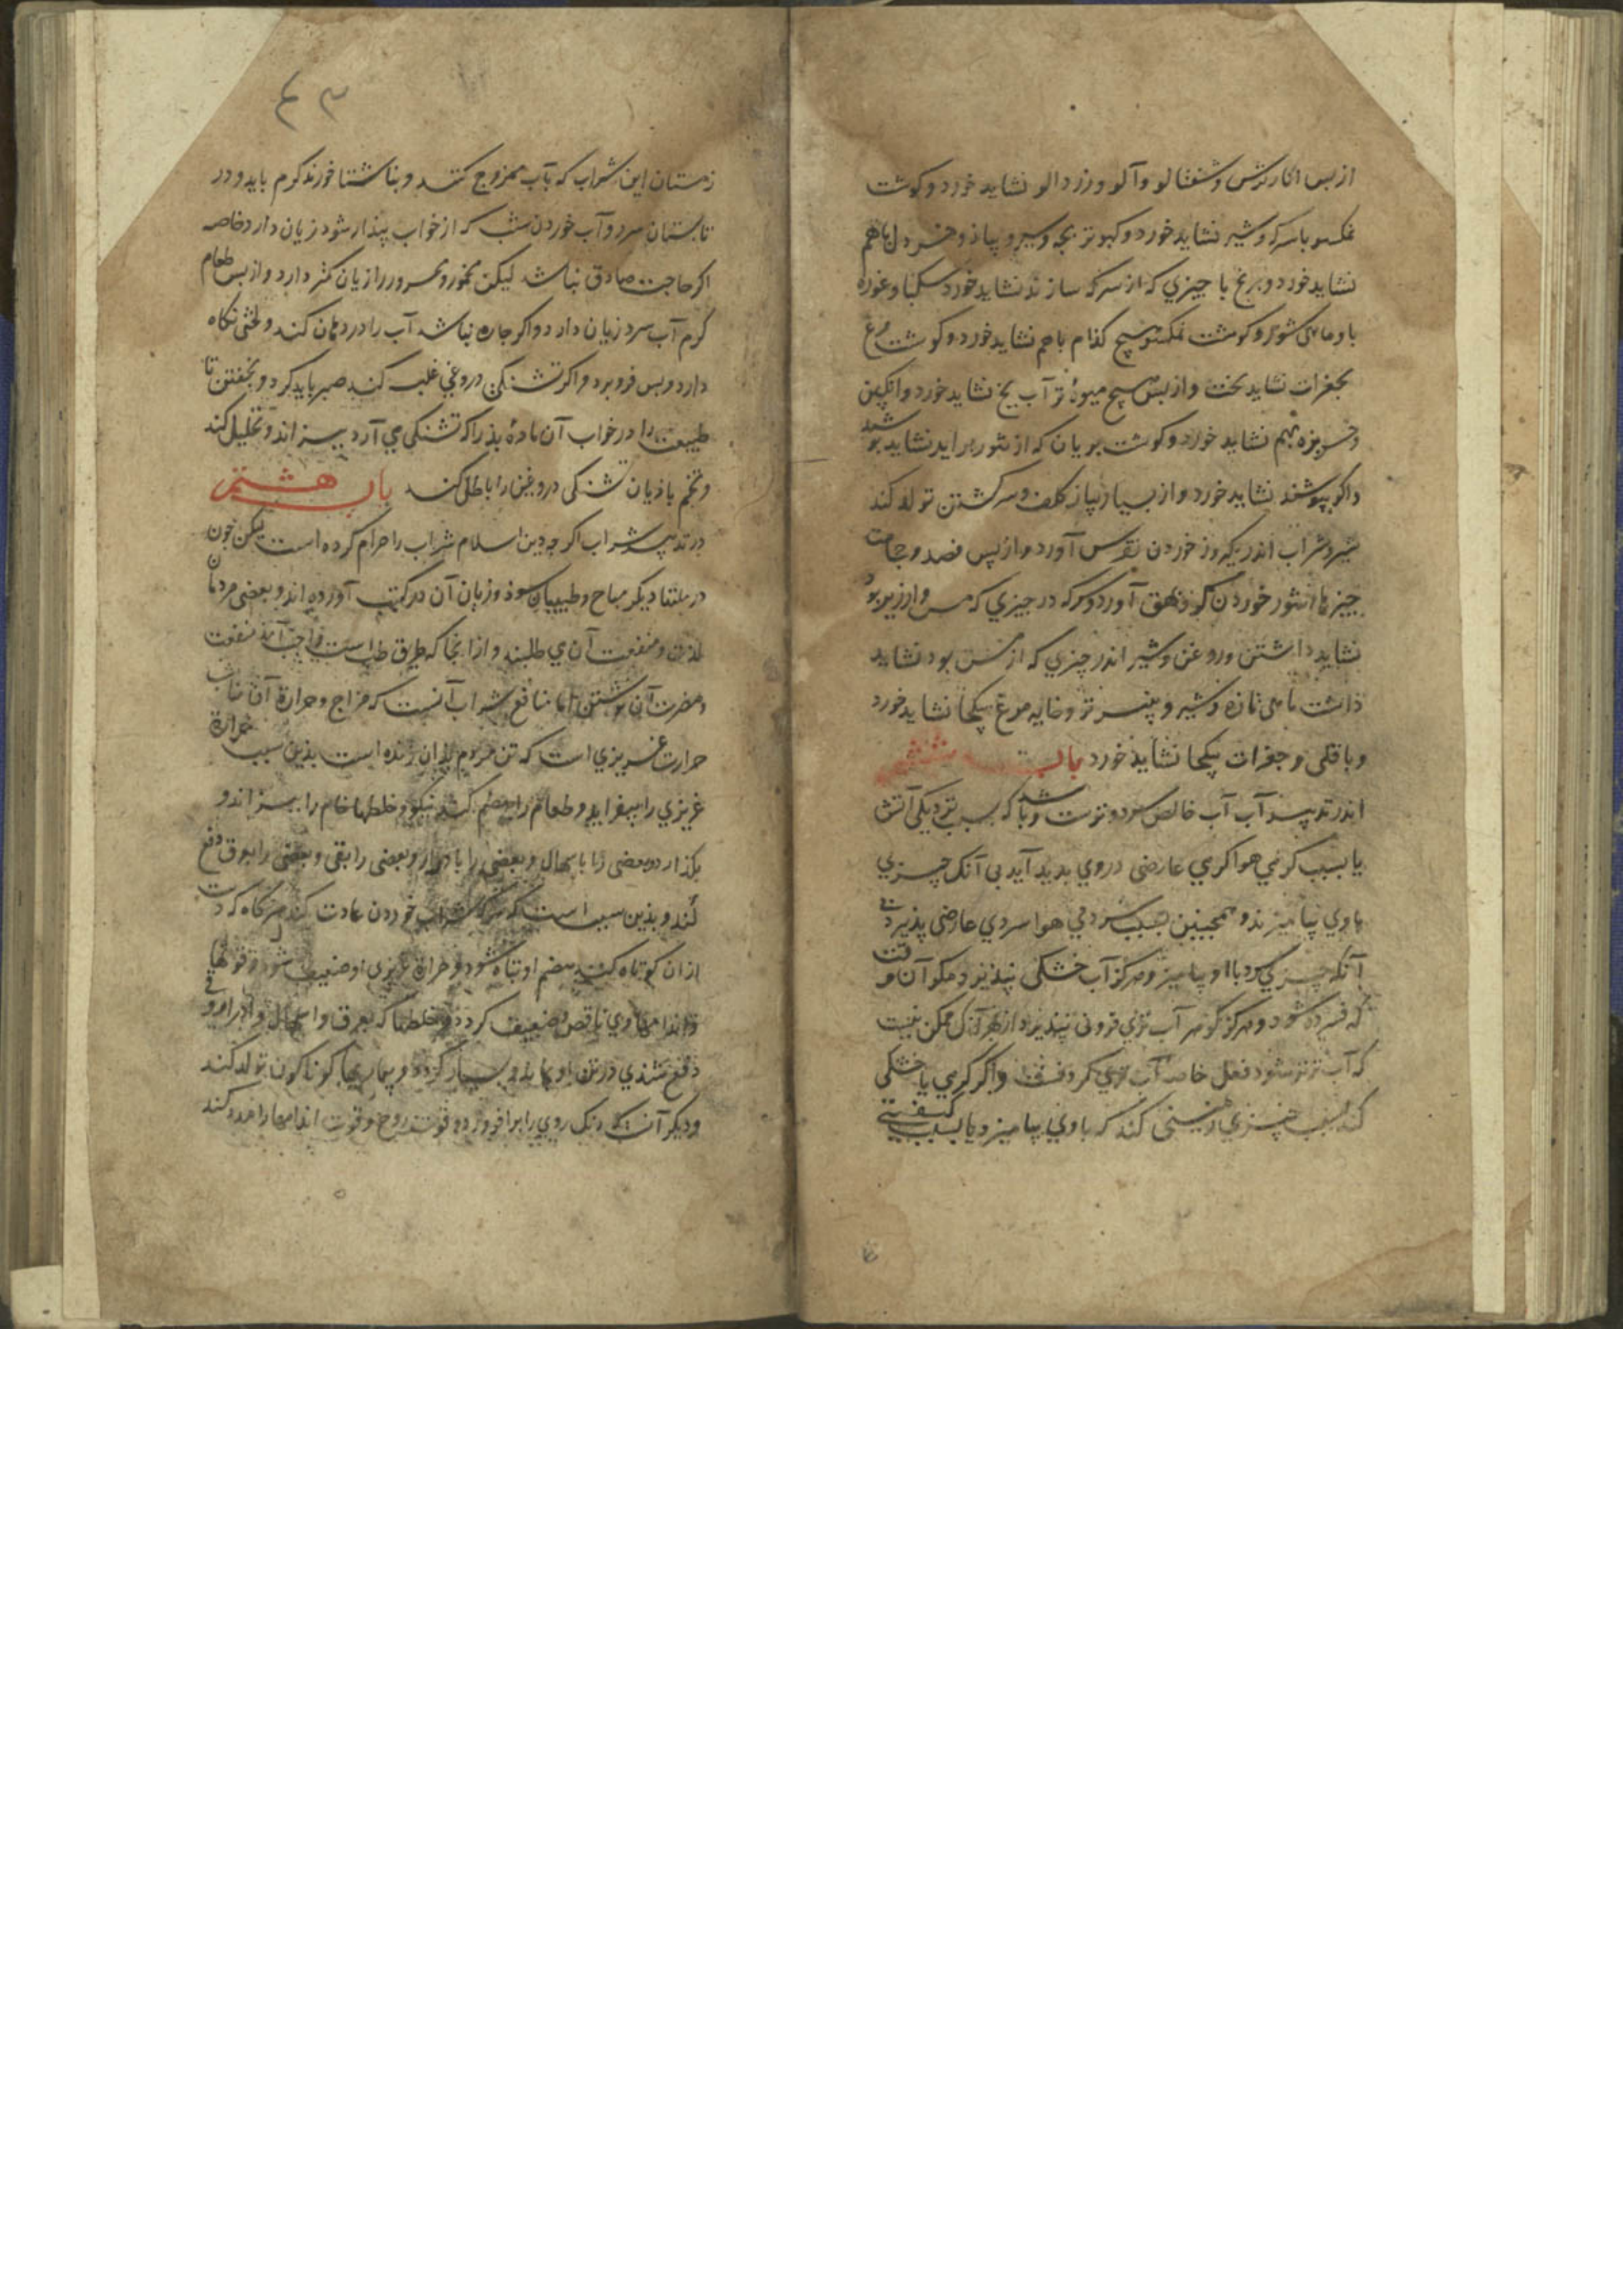 از پس انار ترش و شفتالو و آلو و زردالو نشاید خورد و کوشت
نمکسو با سرکه و شیر نشاید خورد و کبوتر بچه و سیر و پیاز و خردل باهم
نشاید خورد و برنج با چیزي که از سرکه سازند نشاید خورد سکبا و غوره
با و ماهی شور و کوشت نمکسو هیچ کذام باهم نشاید خورد و کوشت مرغ
بجغرات نشاید بخت و از پس هیچ میوۀ تر آب یخ نشاید خورد و انکبین
و خربزه بهم نشاید خورد و کوشت بریان که از تنور براید نشاید پوشید
و اکر بپوشند نشاید خورد و از بسیار پیاز کلف و سر کشتن تولد کند
شیر و شراب اندر یکروز خوردن نقرس آورد و از پس فصد و حجامت
چیزها شور خوردن کر و بهق آورد و سرکه در چیزي که مس و ارزیز بوذ
نشاید داشتن و روغن و شیر اندر چیزي که از مس بود نشاید
داشت ماهی تازه و شیر و پنیر تر و خایه مرغ یکجا نشاید خورد
و باقلی و جغرات یکجا نشاید خورد باب ششم
اندر تدبیر آب آب خالص سرد و ترست و باشد که بسبب نزدیکی آتش
یا بسبب کرمي هوا کرمي عارضی در وي بدید آید بی آنک چیزي
با وي بیامیزند و همچنین بسبب سردي هوا سردي عارضی پذیرد بی
آنکه چیزي سرد با او بیامیزد و هرکز آب خشکی نپذیرد مکر آن وقت
که فسرده شود و هرکز کوهر آب تري فزونی نپذیرد از بهر آنک ممکن نیست
که آب تر تر شود فعل خاصۀ آب تري کردنست و اکر کرمي یا خشکی
کند بسبب چیزي زمینی کند که با وي بیامیزد یا بسبب کیفیتی
٤٣
زمستان این شراب که بآب ممزوج کنند و بناشتا خورند کرم باید و در
تابستان سرد و آب خوردن شب که از خواب بیذار شود زیان دارد خاصه
اکر حاجت صادق نباشد لیکن مخمور و محرور را زیان کمتر دارد و از پس طعام
کرم آب سرد زیان دارد و اکر چاره نباشد آب را در دهان کند و لختی نکاه
دارد و پس فرو برد و اکر تشنکی دروغي غلبه کند صبر باید کرد و بخفتن تا
طبیعت را در خواب آن مادۀ بذ را که تشنکی مي آرد بپزاند و تحلیل کند
و تخم باذیان تشنکی دروغین را باطل کند باب هشتم
در تدبیر شراب اکر چه دین اسلام شراب را حرام کرده است لیکن چون
در ملتها دیکر مباح و طبیبان سوذ و زیان آن در کتب آورده اند و بعضی مردمان
لذت و منفعت آن مي طلبند و از انجا که طریق طب است واجب آمد منفعت
و مضرت آن نوشتن اما منافع شراب آنست که مزاج و حرارة آن مناسب
حرارت غریزي است که تن مردم بذان زنده است بذین سبب حرارة
غریزي را بیفزاید و طعام را هضم کند نیکو و خلطها خام را بپزاند و
بکذارد و بعضی را باسهال و بعضی را بادرار و بعضی را بقی و بعضی را بعرق دفع
کند و بذین سبب است که هرکه شراب خوردن عادت کند هرکاه که دست
از ان کوتاه کند هضم او تباه شود و حرارة غریزي او ضعیف شود و قوتها
و اندامها وي ناقص و ضعیف کردد و خلطها که بعرق و اسهال و ادرار وي
دفع شذي در تن او بماند و بسیار کردد و بیماریها کوناکون تولد کند
و دیکر آنک رنک روي را برافروزد و قوت روح و قوت اندامها را مدد کند